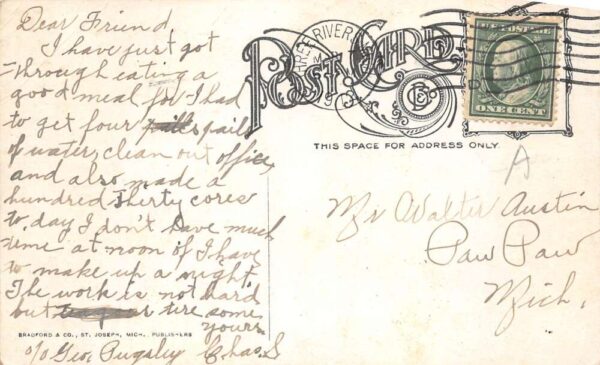 Dear Friend
I have just got
through eating a
good meal for I had
to get four pails
of water, clean out office
and also made a
hundred Thirty cores
to day I don't have much
time at noon of I have
to make up a night.
The work is not hard
but tire some
yours
c/o Geo. Pugsley Chas. S
BRADFORD & CO., ST. JOSEPH, MICH. PUBLISHERS
POST CARD
THIS SPACE FOR ADDRESS ONLY.
RIVER
U.S. POSTAGE
ONE CENT
A
Mr Walter Austin
Paw Paw
Mich.